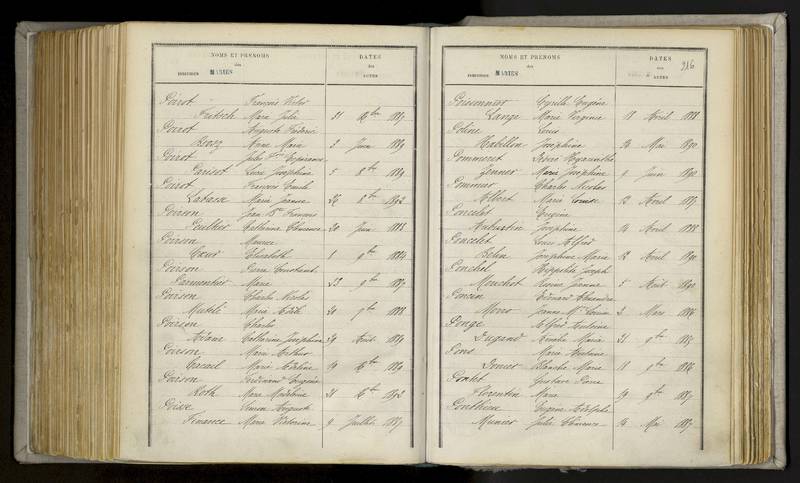 NOMS ET PRÉNOMS
des
MARIÉS
DATES
des
ACTES
Poirot François Victor
Fritsch Marie Julie 31 Xbre 1887
Poirot Auguste
Anne Marie 3 Juin 1889
Poirot Jules
Pariset Lucie Joséphine 5 8bre 1889
Poirot François Emile
Labarre Marie Jeanne 8bre 1892
Poirson Jean Bte François
Poulter Catherine Clémence 20 Juin 1883
Poirson Maurice
Cœur Elisabeth 1 9bre 1884
Poirson Pierre Constant
Parmentier Marie 23 9bre 1887
Poirson Charles Nicolas
Marie 20 7bre 1888
Poirson Charles
Adam Catherine Joséphine 29 Août 1889
Poirson Marie Arthur
Marie Adeline 19 Xbre 1889
Poirson Ferdinand Eugène
Roth Marie Madeleine 31 Xbre 1892
Poisse Simon Auguste
Finance Marie Victorine 9 Juillet 1887
NOMS ET PRÉNOMS
des
MARIÉS
DATES
des
ACTES
216
Poissonnier Cyrille Eugène
Lange Marie Virginie 18 Avril 1888
Poline Louis
Habillon Joséphine 26 Mai 1890
Pommeret Hyacinthe
Jenner Marie Joséphine 9 Juin 1890
Pommier Charles Nicolas
Albert Marie Louise 12 Avril 1887
Poncelet Eugène
Aubertin Joséphine 14 Avril 1888
Poncelet Louis Alfred
Belin Joséphine Marie 12 Avril 1890
Ponchel Hippolyte Joseph
Mouchot Jeanne 5 Août 1890
Poncin Edouard Alexandre
Jeanne Louise 2 Mars 1886
Ponge Alfred Antoine
Dugrand Marie 21 9bre 1885
Pons Marie Antoine
Blanche Marie 18 9bre 1886
Pontet Gustave Pierre
Florentin Marie 19 9bre 1887
Ponthieu Eugène Adolphe
Munier Julie Clémence 14 Mai 1887